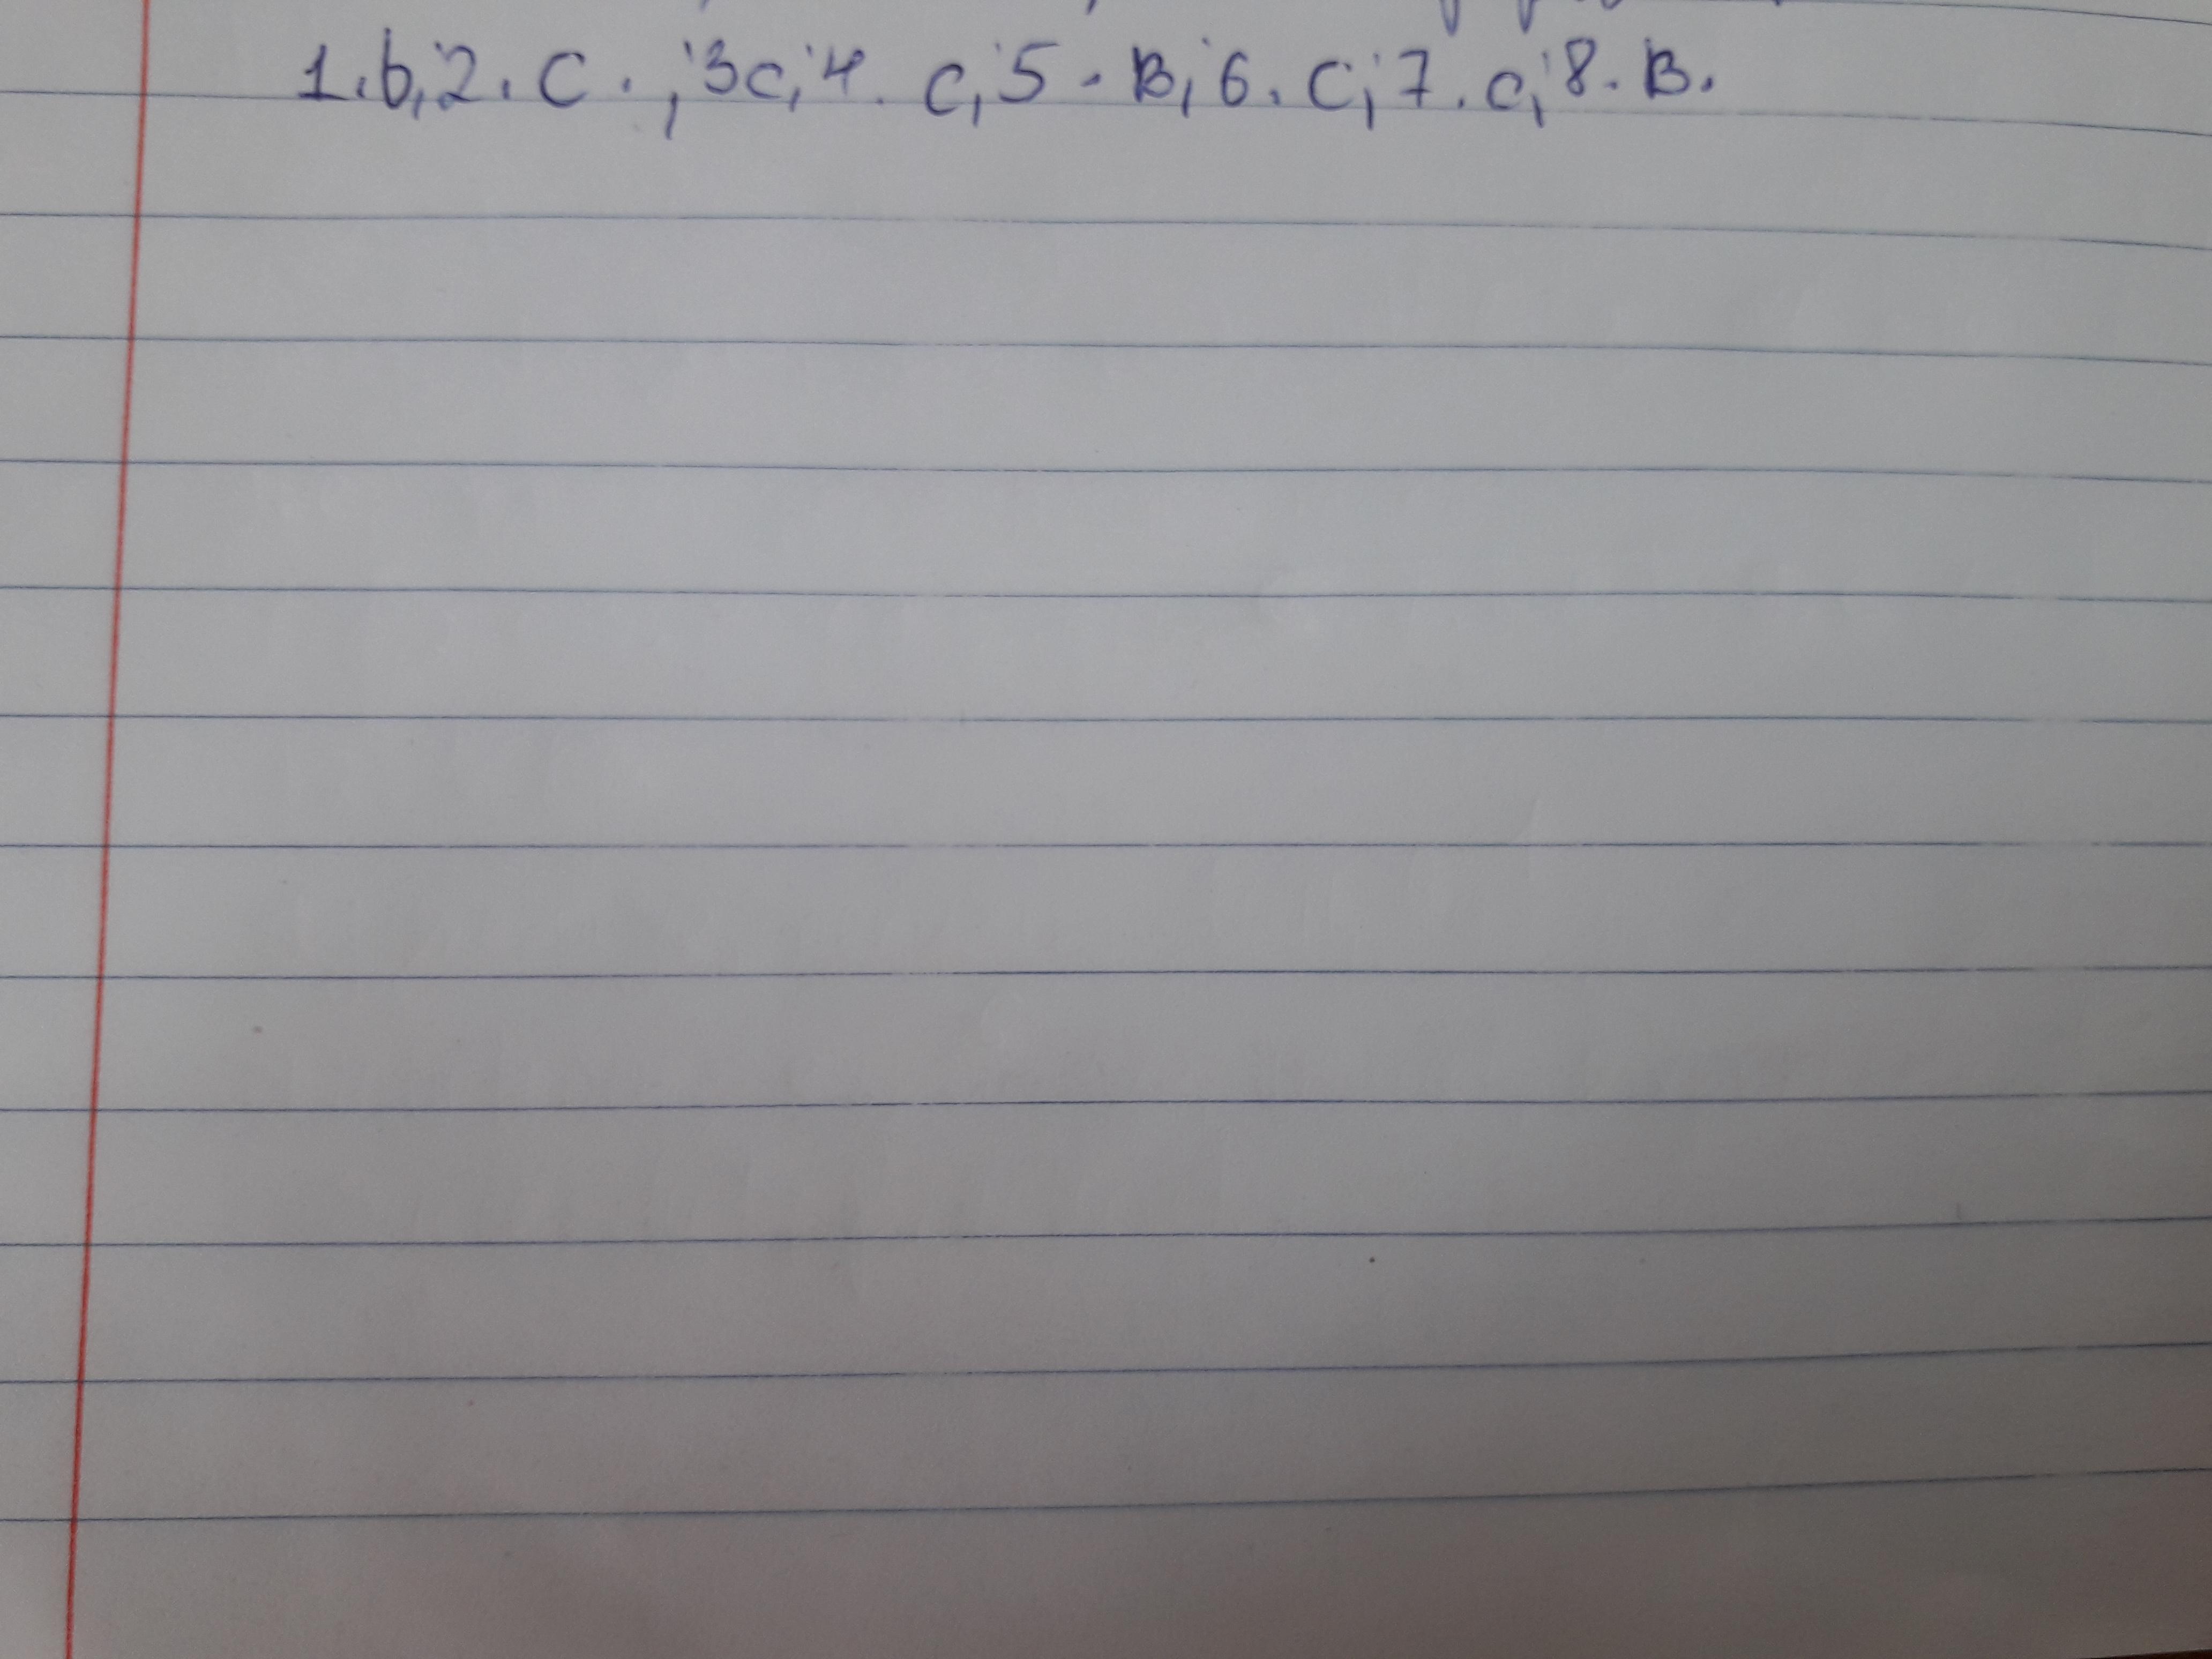 1.b; 2. c. ; 3c; 4. c; 5. B; 6. c; 7. c; 8. B.